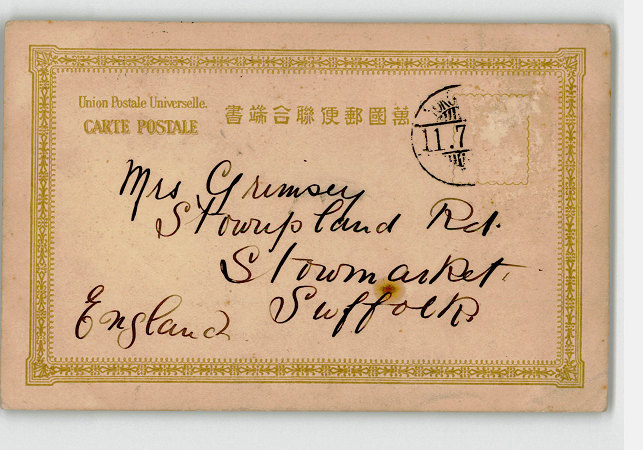 Union Postale Universelle.
CARTE POSTALE
萬國郵便聯合端書
11.7
Mrs Grimsey
Stowupland Rd.
Stowmarket.
Suffolk
England